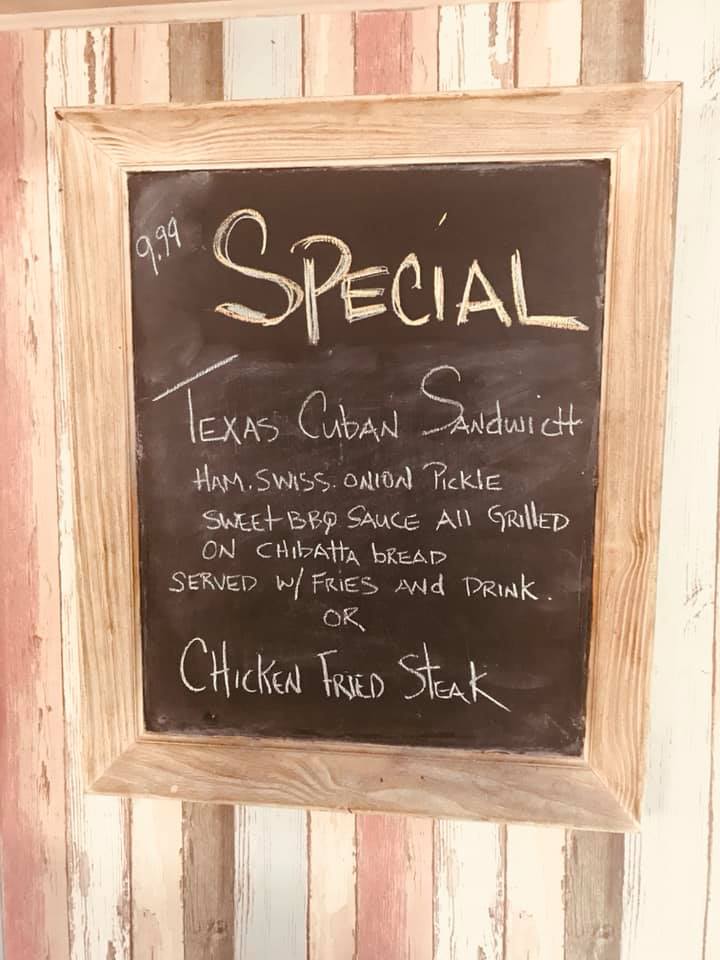 9.99
SPECIAL
TEXAS CUbAN SANdwicH
HAM. SWISS. ONION PicklE
SWEEt BBQ SAUCE All GRillED
ON CHibATTA bREAD
SERVED W/ FRIES ANd DRINK.
OR
CHicKEN FRIED STEAK